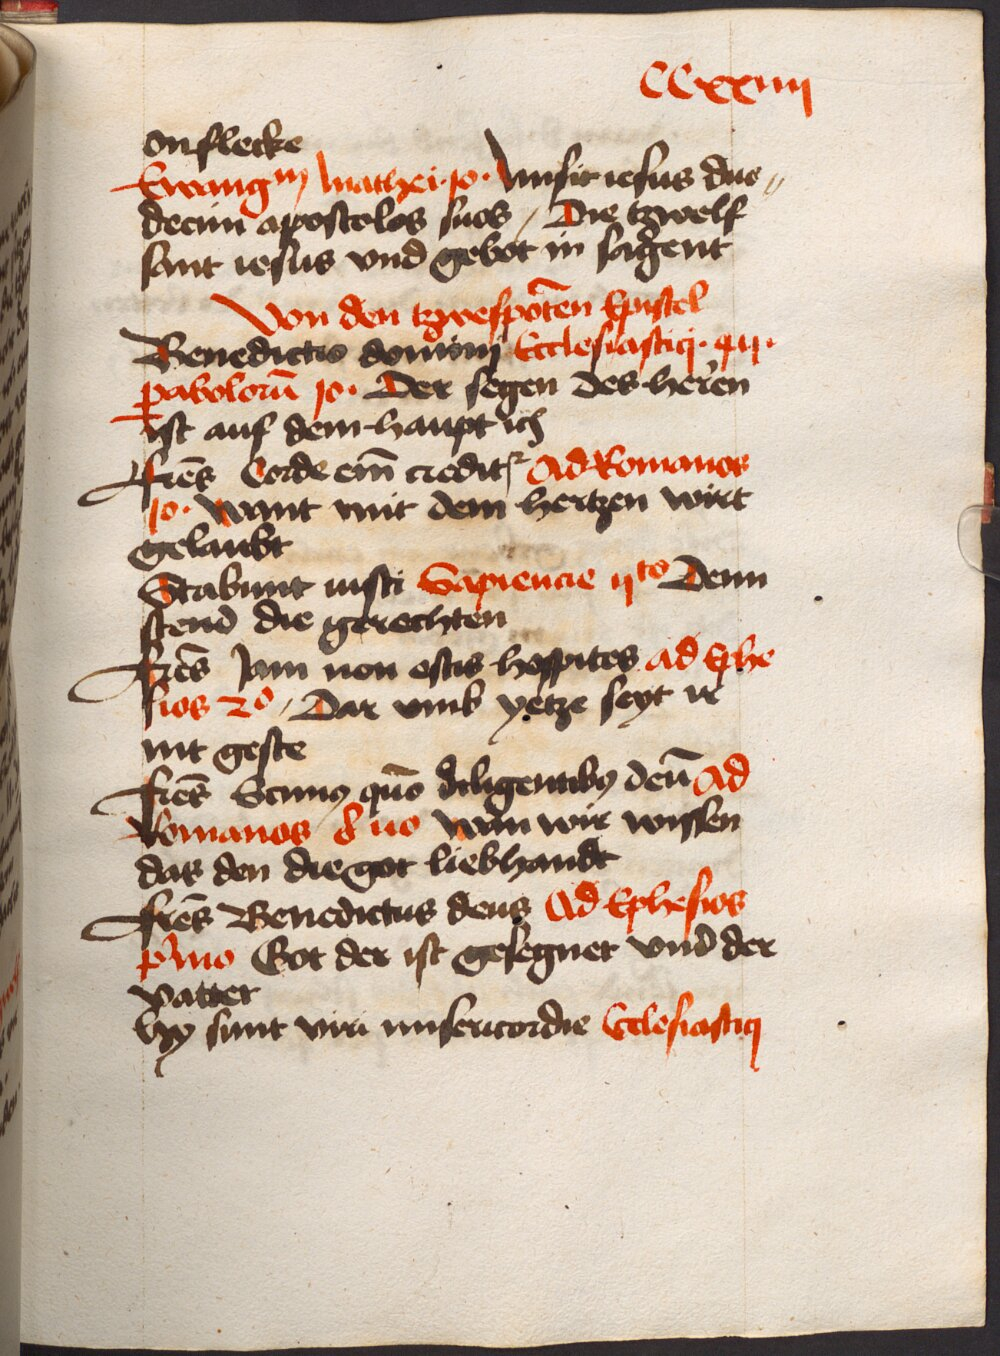 CCxxiiii
on flecke
Ewangm mathei · 10 · Misit iesus duo
decim apostolos suos / Die tzwelf
sant iesus vnd gebot in sagent
Von den tzwespoten Epistel
Benedictio domini Ecclesiastici · 44 ·
pabolorū 10 · Der segen des heren
ist auf dem haupt ich
Fres Corde em̄ creditr Ad Romanos
10 · want mit dem hertzen wirt
gelaubt
Stabunt iusti Sapiencie iito Denn
stend die gerechten
Fres Jam non estis hospites ad Ephe
sios 2o / Dar vmb yetze seyt ir
nit geste
Fres Scimus quō diligentibus deū Ad
Romanos 8uo wan wir wissen
das den die got liebhandt
Fres Benedictus deus Ad Ephesios
pmo Got der ist gesegnet vnd der
vatter
Hy sunt viri misericordie Ecclesiastici